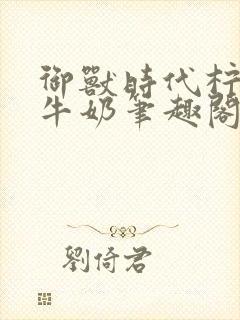 御獸時代柠
牛奶笔趣閣
劉倚君